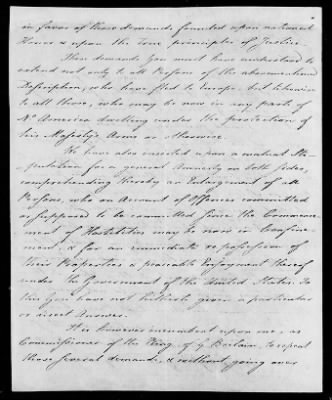 in favor of those demands founded upon national
Honor & upon the true principles of Justice.
These demands you must have understood to
extend not only to all Persons of the abovementioned
Description, who have fled to Europe, but likewise
to all those, who may be now in any parts of
No America dwelling under the protection of
his Majesty's Arms or otherwise.
We have also insisted upon a mutual Sti-
pulation for a general Amnesty on both sides,
comprehending thereby an Enlargement of all
Persons, who on Account of Offences committed
or supposed to be committed since the Commence-
ment of Hostilities may be now in Confine-
ment, & for an immediate repossession of
their Properties & peaceable Enjoyment thereof
under the Government of the United States. To
this you have not hitherto given a particular
or direct Answer.
It is however incumbent upon me, as
Commissioner of the King of G Britain, to repeat
those several demands, & without going over